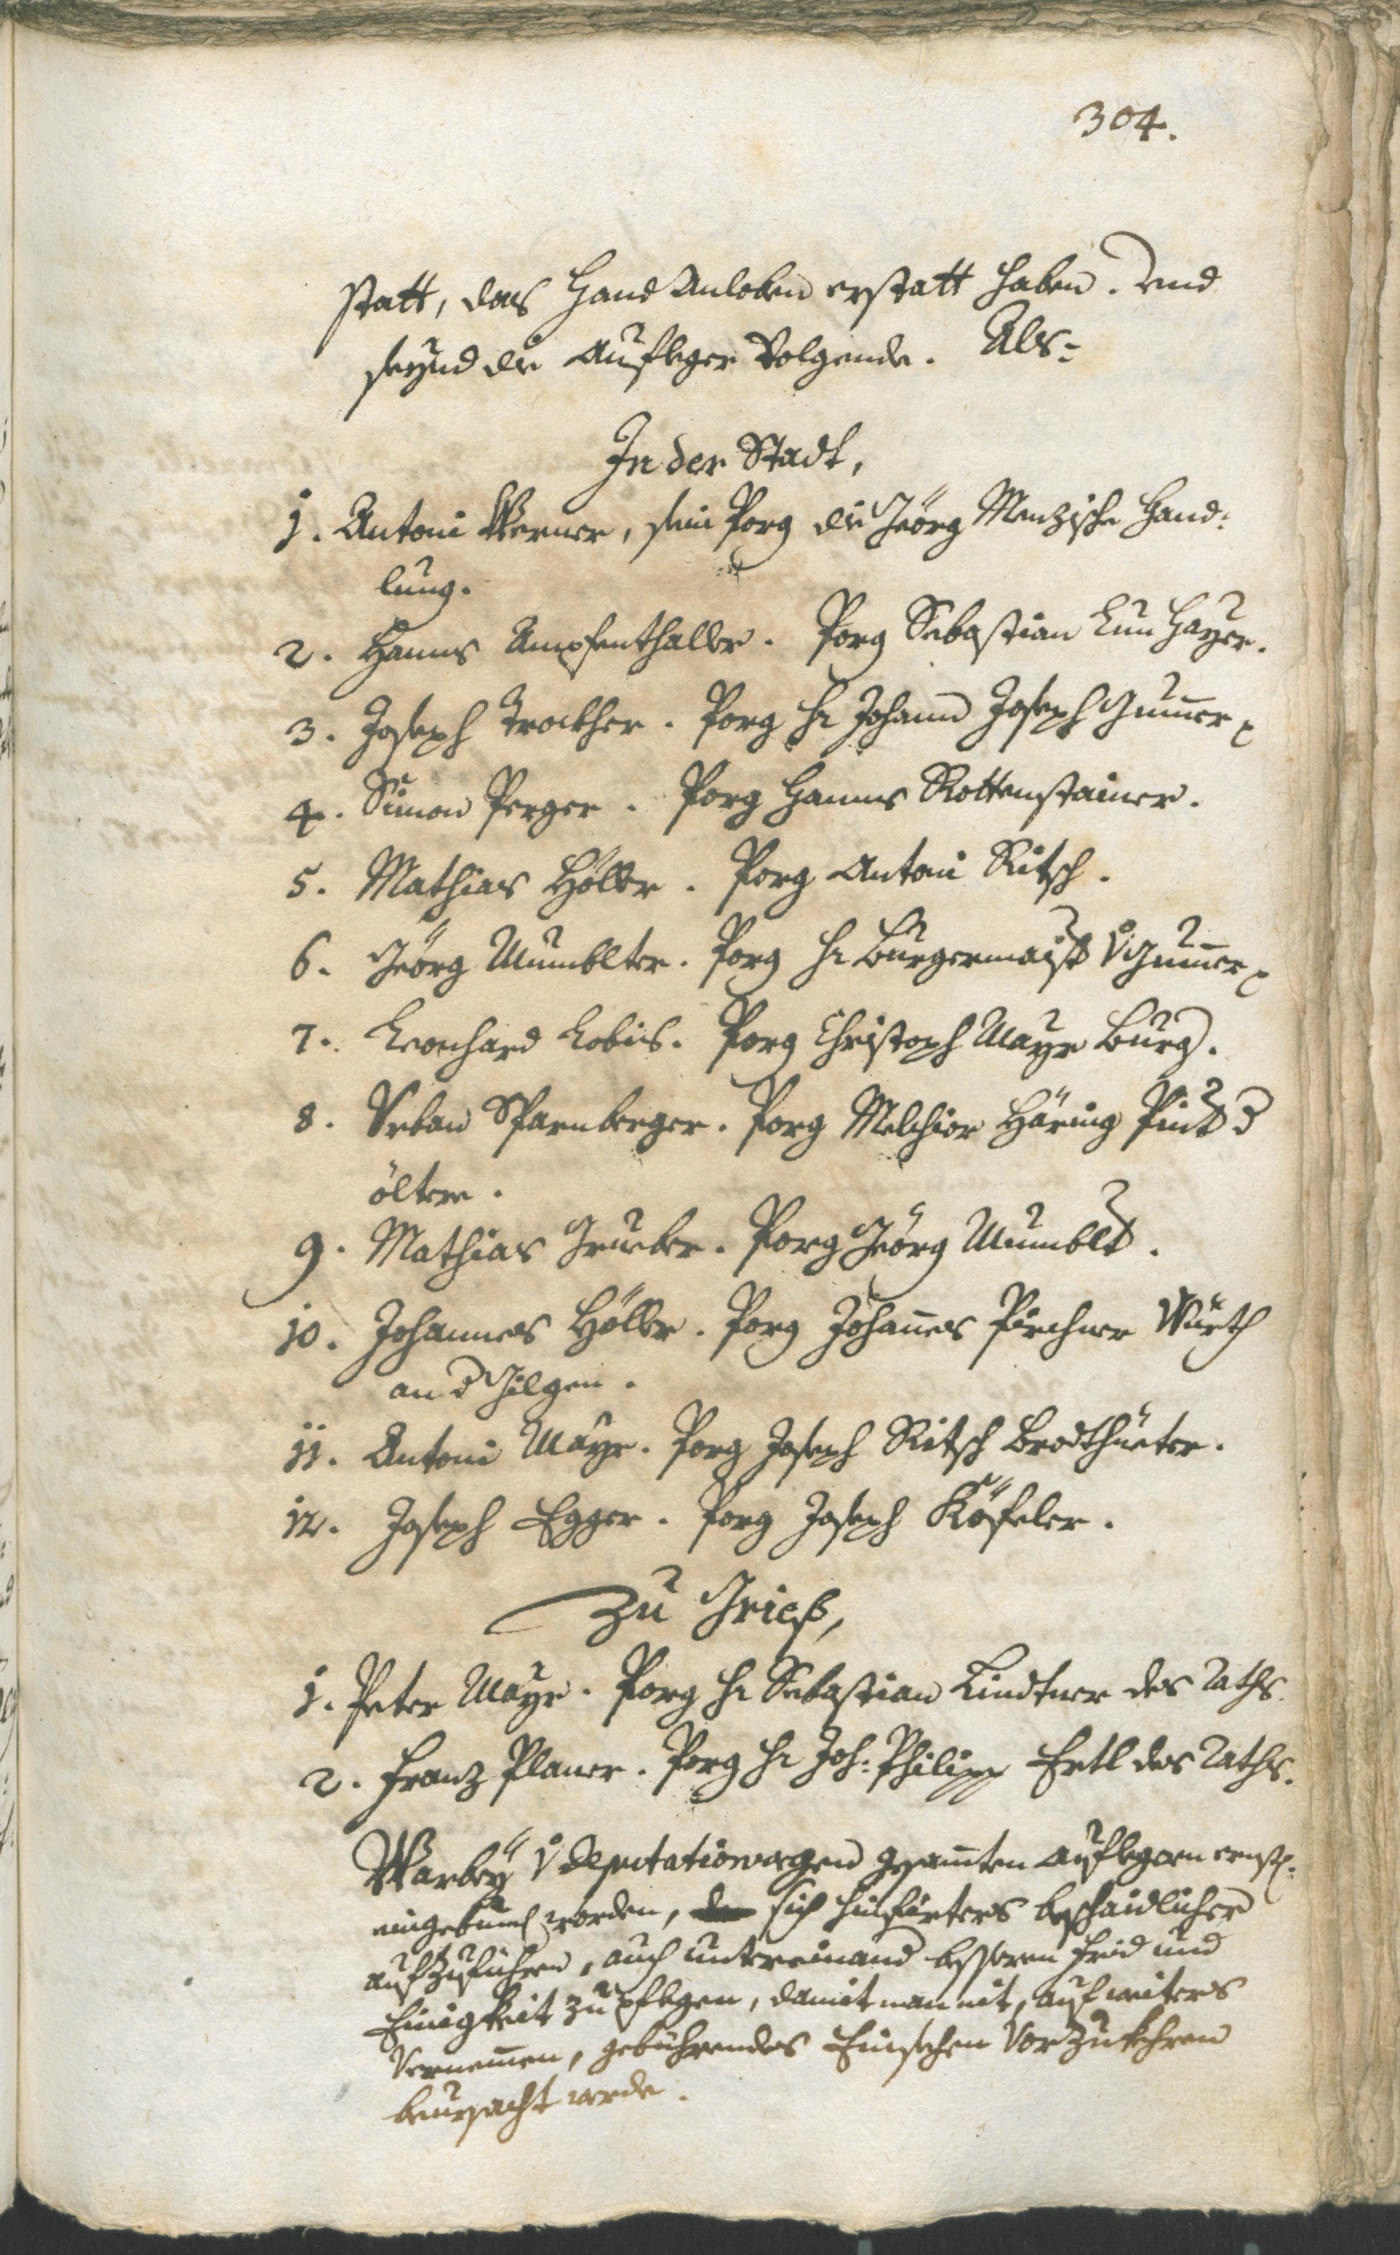 304.
statt, das Hand Anloben erstatt haben. und
seynd die Aufleger Volgende. Als:
In der Stadt,
1. Antoni Werner, sein Porg die Jeörg Menzische Hand:
lung.
2. Hanns Ampfenthaller. Porg Sebastian Lun Hayer.
3. Joseph Trockher. Porg Hr Johann Joseph Gum̄er
4. Simon Perger. Porg Hanns Rottenstainer.
5. Mathias Höller. Porg Antoni Ritsch.
6. Jeörg Mumblter. Porg Hr Burgermaist v Gum̄er
7. Leonhard Lobis. Porg Christoph Mayr Burg.
8. Urban Sparnberger. Porg Melchior Häring Pint d
öltere.
9. Mathias Grueber. Porg Jeörg Mumblt.
10. Johannes Höller. Porg Johan̄es Pirchner Würth
an d Gilgen.
11. Antoni Mayr. Porg Joseph Ritsch Brodthüeter.
12. Joseph Egger. Porg Joseph Köfeler.
Zu Grieß,
1. Peter Mayr. Porg Hr Sebastian Lindtner des Raths.
2. Franz Planer. Porg Hr Joh: Philipp Ertl des Raths.
Warbey v deputationwegen gesam̄ten Auflegern ernstl:
eingebunden worden, sich hinfürters beschaidlicher
aufzuführen, auch untereinand besseren Frid und
Einigkeit zu pflegen, damit man nit, auf weiters
Vernem̄en, gebührendes Einsehen Vorzukehren
beursacht werde.